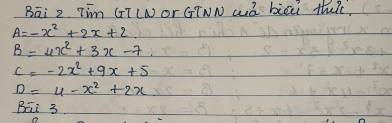 Bài 2 Tìm GTLN or GTNN của biểu thức.
A = -x² + 2x + 2.
B = 4x² + 3x - 7.
C = -2x² + 9x + 5
D = 4 - x² + 2x
Bài 3